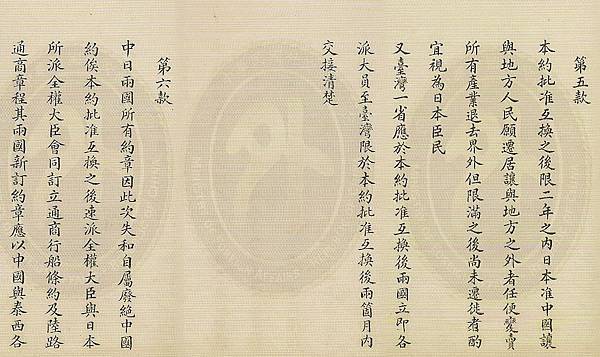 第五款
本約批准互換之後限二年之內日本准中國讓
與地方人民願遷居讓與地方之外者任便變賣
所有產業退去界外但限滿之後尚未遷徙者酌
宜視為日本臣民
又臺灣一省應於本約批准互換後兩國立即各
派大員至臺灣限於本約批准互換後兩箇月內
交接清楚
第六款
中日兩國所有約章因此次失和自屬廢絕中國
約俟本約批准互換之後速派全權大臣與日本
所派全權大臣會同訂立通商行船條約及陸路
通商章程其兩國新訂約章應以中國與泰西各